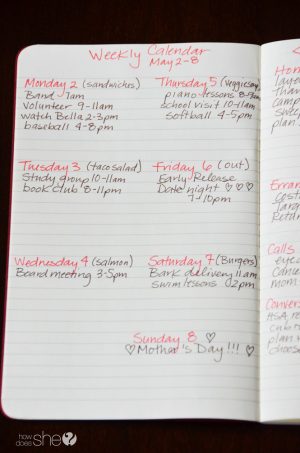 Weekly Calendar
May 2-8
Monday 2 (sandwiches)
Band 7am
Volunteer 9-11am
watch Bella 2-3pm
baseball 4-8pm
Thursday 5
piano lessons
school visit 10-11am
softball 4-5pm
Tuesday 3 (taco salad)
Study group 10-11am
book club 8-11pm
Friday 6 (out)
Early Release
Date night ♡♡♡
7-10pm
Wednesday 4 (salmon)
Board meeting 3-5pm
Saturday 7 (Burgers)
Bark delivery 11am
swim lessons 2pm
Sunday 8 ♡
♡ Mother's Day!!! ♡
Calls
mom
how
does
she?